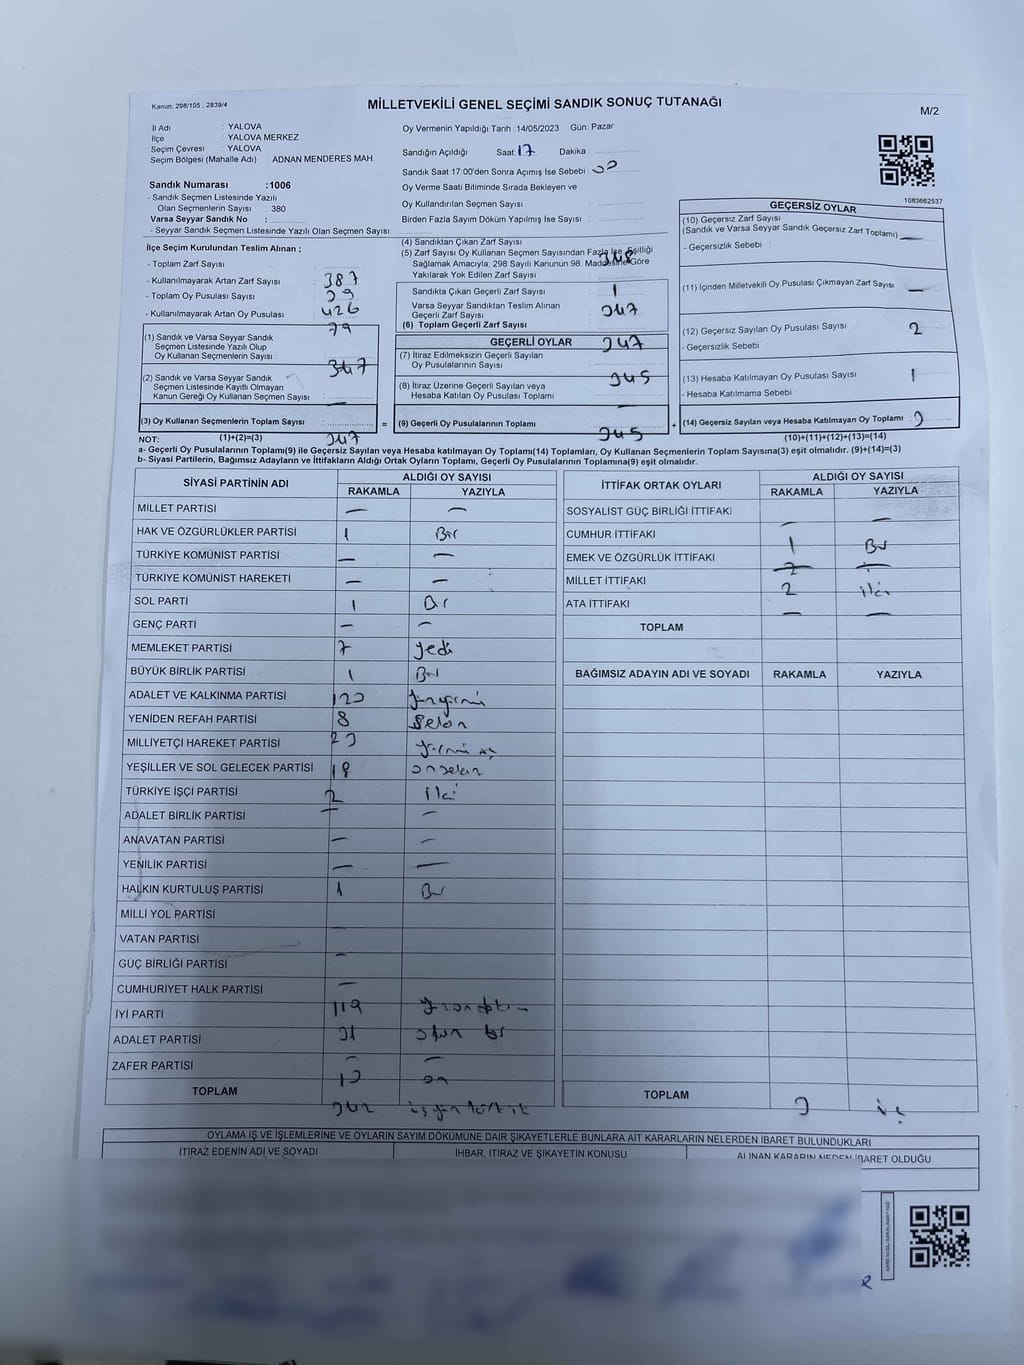 Kanun. 298/105 , 2839/4
MİLLETVEKİLİ GENEL SEÇİMİ SANDIK SONUÇ TUTANAĞI
M/2
İl Adı : YALOVA
İlçe : YALOVA MERKEZ
Seçim Çevresi : YALOVA
Seçim Bölgesi (Mahalle Adı) : ADNAN MENDERES MAH.
Sandık Numarası :1006
- Sandık Seçmen Listesinde Yazılı
Olan Seçmenlerin Sayısı : 380
Varsa Seyyar Sandık No :
- Seyyar Sandık Seçmen Listesinde Yazılı Olan Seçmen Sayısı:
Oy Vermenin Yapıldığı Tarih :14/05/2023 Gün: Pazar
Sandığın Açıldığı Saat: 17 Dakika :
Sandık Saat 17:00'den Sonra Açımış İse Sebebi :
Oy Verme Saati Bitiminde Sırada Bekleyen ve
Oy Kullandırılan Seçmen Sayısı :
Birden Fazla Sayım Döküm Yapılmış İse Sayısı :
1083662537
İlçe Seçim Kurulundan Teslim Alınan ;
- Toplam Zarf Sayısı :
- Kullanılmayarak Artan Zarf Sayısı : 387
- Toplam Oy Pusulası Sayısı : 39
- Kullanılmayarak Artan Oy Pusulası : 426
79
(1) Sandık ve Varsa Seyyar Sandık
Seçmen Listesinde Yazılı Olup
Oy Kullanan Seçmenlerin Sayısı :
347
(2) Sandık ve Varsa Seyyar Sandık
Seçmen Listesinde Kayıtlı Olmayan
Kanun Gereği Oy Kullanan Seçmen Sayısı :
—
(3) Oy Kullanan Seçmenlerin Toplam Sayısı :
(4) Sandıktan Çıkan Zarf Sayısı :
(5) Zarf Sayısı Oy Kullanan Seçmen Sayısından Fazla İse, Eşitliği
Sağlamak Amacıyla, 298 Sayılı Kanunun 98. Maddesine Göre
Yakılarak Yok Edilen Zarf Sayısı :
348
Sandıkta Çıkan Geçerli Zarf Sayısı : 1
Varsa Seyyar Sandıktan Teslim Alınan
Geçerli Zarf Sayısı : 347
(6) Toplam Geçerli Zarf Sayısı :
GEÇERLİ OYLAR
347
(7) İtiraz Edilmeksizin Geçerli Sayılan
Oy Pusulalarının Sayısı :
345
(8) İtiraz Üzerine Geçerli Sayılan veya
Hesaba Katılan Oy Pusulası Toplamı :
—
= (9) Geçerli Oy Pusulalarının Toplamı :
GEÇERSİZ OYLAR
(10) Geçersiz Zarf Sayısı
(Sandık ve Varsa Seyyar Sandık Geçersiz Zarf Toplamı) : —
- Geçersizlik Sebebi :
(11) İçinden Milletvekili Oy Pusulası Çıkmayan Zarf Sayısı : —
(12) Geçersiz Sayılan Oy Pusulası Sayısı : 2
- Geçersizlik Sebebi :
(13) Hesaba Katılmayan Oy Pusulası Sayısı : 1
- Hesaba Katılmama Sebebi :
+ (14) Geçersiz Sayılan veya Hesaba Katılmayan Oy Toplamı : 3
NOT: (1)+(2)=(3) 347 345 (10)+(11)+(12)+(13)=(14)
a- Geçerli Oy Pusulalarının Toplamı(9) ile Geçersiz Sayılan veya Hesaba katılmayan Oy Toplamı(14) Toplamları, Oy Kullanan Seçmenlerin Toplam Sayısına(3) eşit olmalıdır. (9)+(14)=(3)
b- Siyasi Partilerin, Bağımsız Adayların ve İttifakların Aldığı Ortak Oyların Toplamı, Geçerli Oy Pusulalarının Toplamına(9) eşit olmalıdır.
SİYASİ PARTİNİN ADI ALDIĞI OY SAYISI
RAKAMLA YAZIYLA
MİLLET PARTİSİ — —
HAK VE ÖZGÜRLÜKLER PARTİSİ 1 Bir
TÜRKİYE KOMÜNİST PARTİSİ — —
TÜRKİYE KOMÜNİST HAREKETİ — —
SOL PARTİ 1 Bir
GENÇ PARTİ — —
MEMLEKET PARTİSİ 7 yedi
BÜYÜK BİRLİK PARTİSİ 1 Bir
ADALET VE KALKINMA PARTİSİ 120
YENİDEN REFAH PARTİSİ 8 sekiz
MİLLİYETÇİ HAREKET PARTİSİ 23 yirmi üç
YEŞİLLER VE SOL GELECEK PARTİSİ 18 onsekiz
TÜRKİYE İŞÇİ PARTİSİ 2 iki
ADALET BİRLİK PARTİSİ — —
ANAVATAN PARTİSİ — —
YENİLİK PARTİSİ — —
HALKIN KURTULUŞ PARTİSİ 1 Bir
MİLLİ YOL PARTİSİ
VATAN PARTİSİ —
GÜÇ BİRLİĞİ PARTİSİ —
CUMHURİYET HALK PARTİSİ —
İYİ PARTİ 119
ADALET PARTİSİ 31 otuz bir
ZAFER PARTİSİ — —
10 on
TOPLAM
342
İTTİFAK ORTAK OYLARI ALDIĞI OY SAYISI
RAKAMLA YAZIYLA
SOSYALİST GÜÇ BİRLİĞİ İTTİFAKI — —
CUMHUR İTTİFAKI 1 Bir
EMEK VE ÖZGÜRLÜK İTTİFAKI —
MİLLET İTTİFAKI 2 iki
ATA İTTİFAKI — —
TOPLAM
BAĞIMSIZ ADAYIN ADI VE SOYADI RAKAMLA YAZIYLA
TOPLAM 3 üç
OYLAMA İŞ VE İŞLEMLERİNE VE OYLARIN SAYIM DÖKÜMÜNE DAİR ŞİKAYETLERLE BUNLARA AİT KARARLARIN NELERDEN İBARET BULUNDUKLARI
İTİRAZ EDENİN ADI VE SOYADI İHBAR, İTİRAZ VE ŞİKAYETİN KONUSU ALINAN KARARIN NEDEN İBARET OLDUĞU